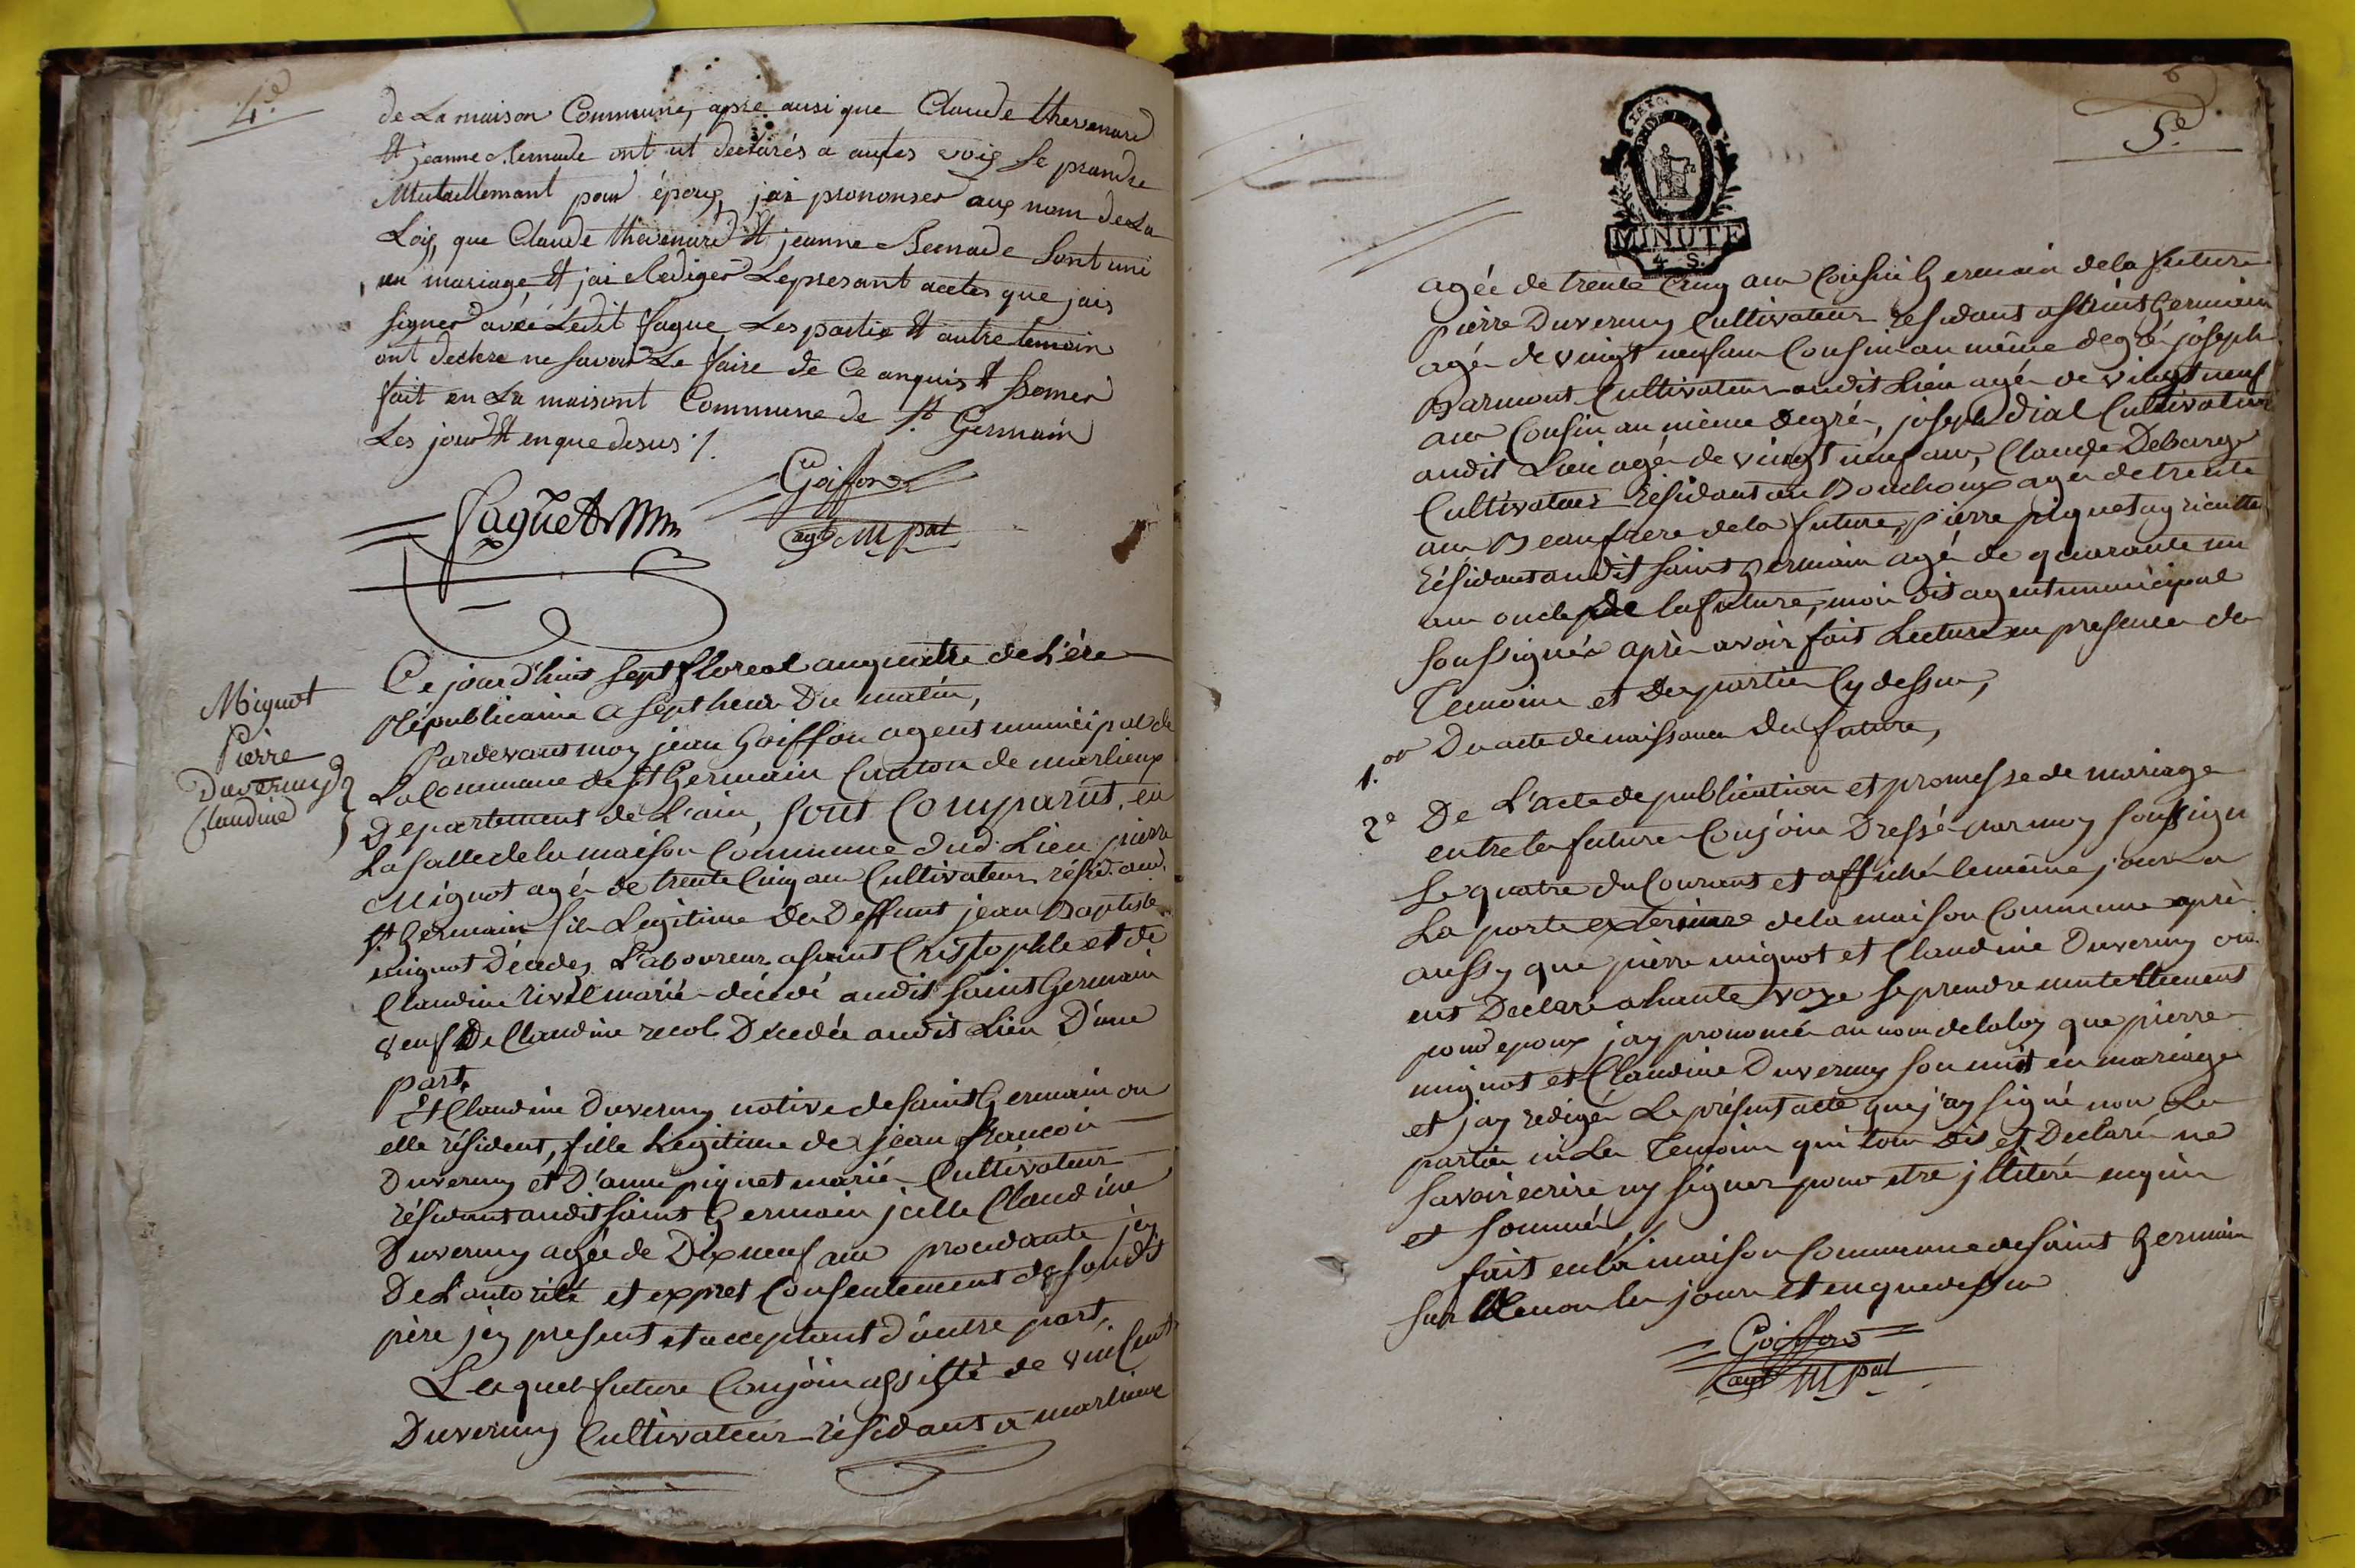 4.e
de La maison Commune, apre ausi que Claude thevenard
Et jeanne Bernade ont ut declarés a autes voig Se prandre
Mutuellemant pour époug, jai prononser aug nom de La
Loig, que Claude thevenard Et jeanne Bernade Sont uni
en mariage Et jai Rediger Le presant actes que jais
Signer avec Ledit faguet Les partie Et autre temoin
ont declere ne Savoir Le faire de Ce anquis Et Somer
fait en La maisont Commune de St Germain
Les jour Et en que desus ./.
faguet
Goiffon
agt M pal
Mignot
Pierre
Duverny
Claudine
Ce jourd'huit sept floreal an quatre de L'ére
Républicaine a sept heure Du matin,
Pardevant moy jean Goiffon agent municipal de
La Commune de St Germain Canton de marlieux
Departement de L'ain, sont Comparut, en
La salle de la maison Commune dud. Lieu pierre
Mignot agé de trente Cinq ans Cultivateur résid. aud.
St Germain fils Légitime De Deffunt jean Baptiste
mignot Décédez Laboureur a saint Christophle et de
Claudine rivel mariés décédé audit saint Germain
veuf De Claudine recol Décedée audit Lieu D'une
part.
Et Claudine Duverny native de saint Germain ou
elle résident, fille Légitime de jean françois
Duverny et D'anne piquet marié Cultivateur
résidant audit saint Germain jcelle Claudine
Duverny agée de Dix neuf ans procedante jcy
De L'autorité et expret Consentement de sondit
père jcy present et acceptant d'autre part,
Lequel future Conjoin assisté de vincent
Duverny Cultivateur résidant a marlieux
5.e
MINUTE
4 S.
agée de trente Cinq ans Cousin Germain de la future
pierre Duverny Cultivateur résidant a saint Germain
agé de vingt neuf ans Cousin au même degré joseph
Barmont Cultivateur audit Lieu agé de vingt neuf
ans Cousin au même Degré, joseph dial Cultivateur
audit Lieu agé de vingt neuf ans, Claude Debarge
Cultivateur résidant au Bouchoux agé de trente
ans Beaufrere de la future, pierre piquet agriculte
résidant audit saint Germain agé de quarante un
ans oncle de la future, moi dit agent municipal
soussignée après avoir fait Lecture en presence de
Temoins et Des partie Cy dessus,
1.er Du acte de naissance Du future,
2e De L'acte de publication et promesse de mariage
entre les future Conjoin Dressé par moy soussigné
Le quatre du Courant et affiché le même jour a
La porte exterieure de la maison Commune après
aussy que pierre mignot et Claudine Duverny on
ent Déclaré a haute voye se prendre mutellement
pour epoux j'ay prononcé au nom de la loy que pierre
mignot et Claudine Duverny son unit en mariage
et j'ay redigée Le présent acte que j'ay signé non Les
partie ni Les Temoin qui tous Dit et Declaré ne
savoir ecrire ny signer pour etre jlliteré enquis
et sommé //
fait en la maison Commune de saint Germain
sur Renon les jour et en que dessus
Goiffon
agt M pal